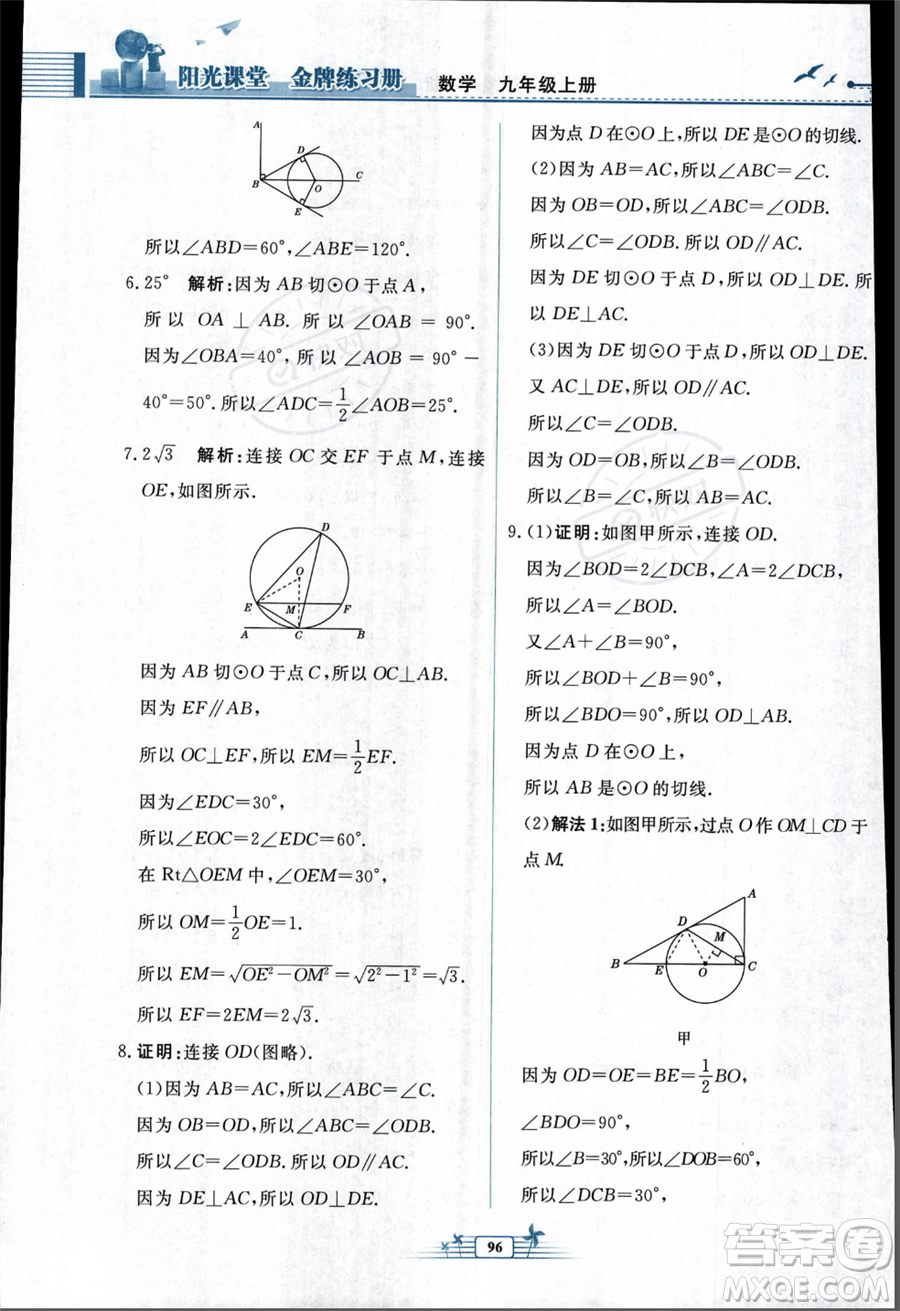 阳光课堂 金牌练习册 数学 九年级上册
A
D
B
O
C
E
所以∠ABD=60°,∠ABE=120°.
6.25° 解析:因为AB切⊙O于点A,
所以OA⊥AB.所以∠OAB=90°.
因为∠OBA=40°,所以∠AOB=90°−
40°=50°.所以∠ADC=1/2∠AOB=25°.
7.2√3 解析:连接OC交EF于点M,连接
OE,如图所示.
D
O
E
M
F
A
C
B
因为AB切⊙O于点C,所以OC⊥AB.
因为EF∥AB,
所以OC⊥EF,所以EM=1/2EF.
因为∠EDC=30°,
所以∠EOC=2∠EDC=60°.
在Rt△OEM中,∠OEM=30°,
所以OM=1/2OE=1.
所以EM=√(OE²−OM²)=√(2²−1²)=√3.
所以EF=2EM=2√3.
8.证明:连接OD(图略).
(1)因为AB=AC,所以∠ABC=∠C.
因为OB=OD,所以∠ABC=∠ODB.
所以∠C=∠ODB.所以OD∥AC.
因为DE⊥AC,所以OD⊥DE.
因为点D在⊙O上,所以DE是⊙O的切线.
(2)因为AB=AC,所以∠ABC=∠C.
因为OB=OD,所以∠ABC=∠ODB.
所以∠C=∠ODB.所以OD∥AC.
因为DE切⊙O于点D,所以OD⊥DE.所
以DE⊥AC.
(3)因为DE切⊙O于点D,所以OD⊥DE.
又AC⊥DE,所以OD∥AC.
所以∠C=∠ODB.
因为OD=OB,所以∠B=∠ODB.
所以∠B=∠C.所以AB=AC.
9.(1)证明:如图甲所示,连接OD.
因为∠BOD=2∠DCB,∠A=2∠DCB,
所以∠A=∠BOD.
又∠A+∠B=90°,
所以∠BOD+∠B=90°,
所以∠BDO=90°,所以OD⊥AB.
因为点D在⊙O上,
所以AB是⊙O的切线.
(2)解法1:如图甲所示,过点O作OM⊥CD于
点M.
A
D
M
B
E
O
C
甲
因为OD=OE=BE=1/2BO,
∠BDO=90°,
所以∠B=30°,所以∠DOB=60°,
所以∠DCB=30°,
96
答案圈
MXQE.COM